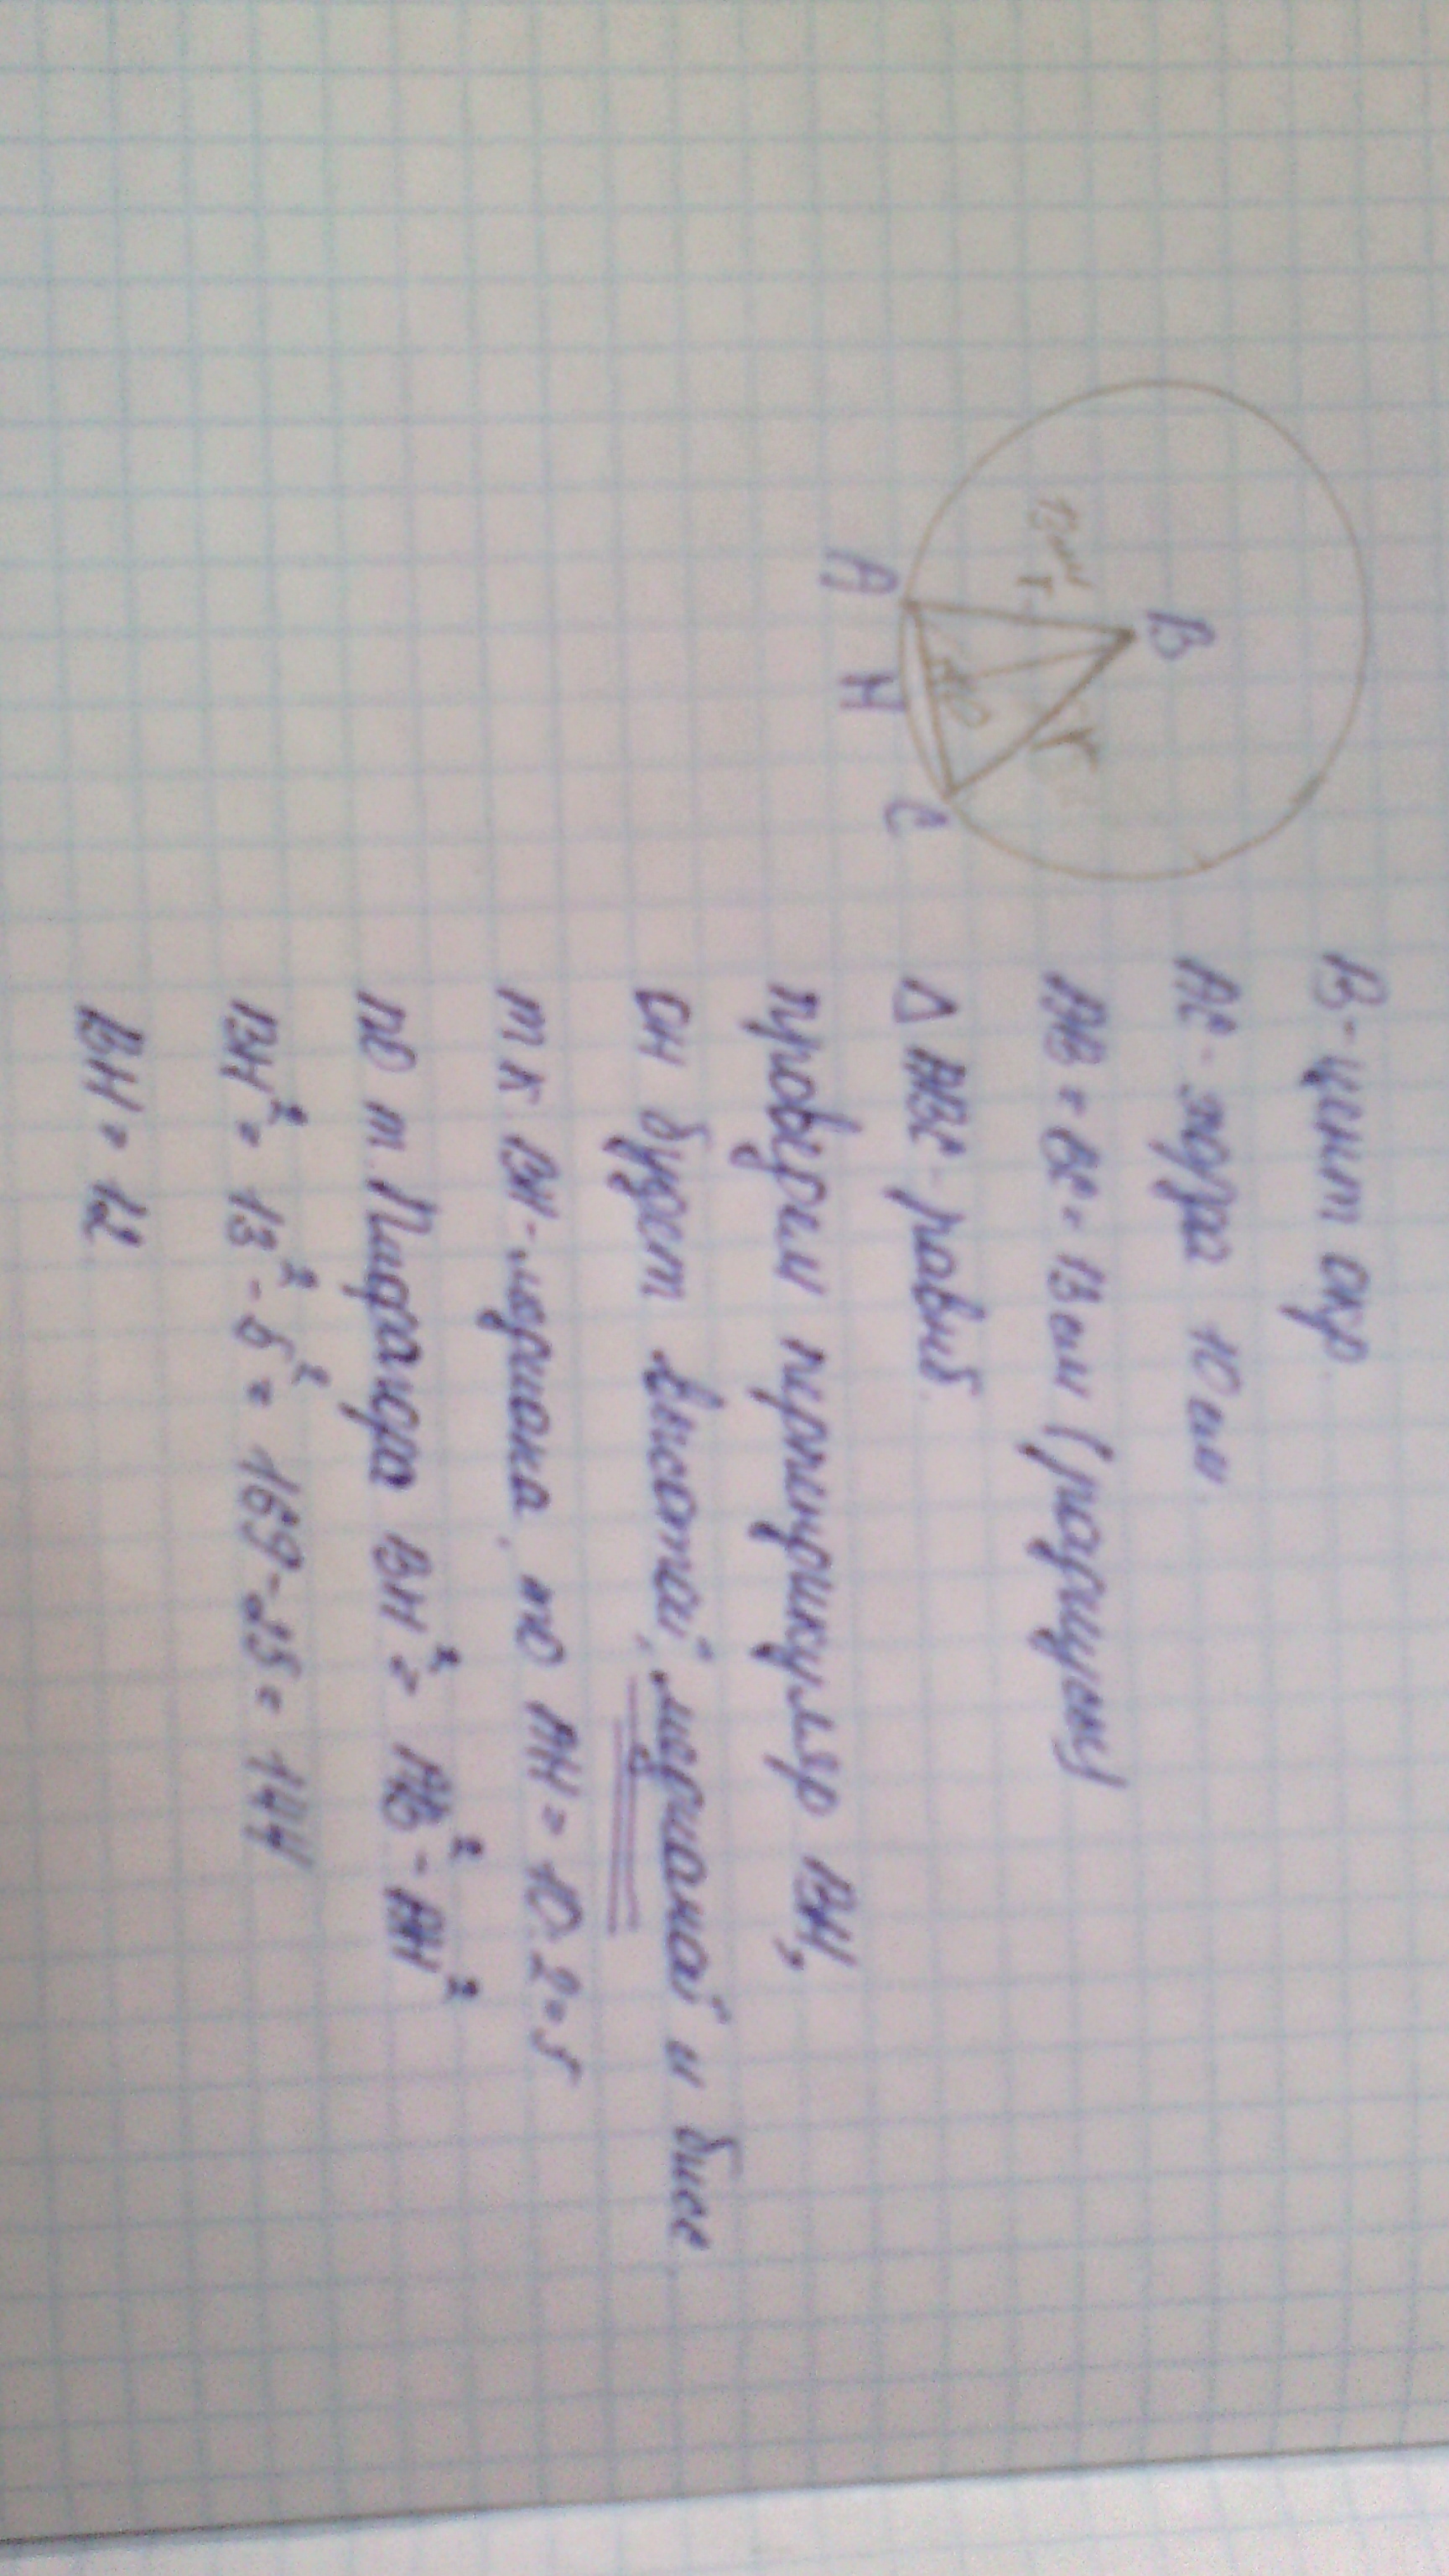 B
13 см
r
r
10
A
H
C
B - цент окр
AC - хорда 10 см
AB = BC = 13 см (радиусы)
△ ABC - равнб.
проведем перпендикуляр BH,
он будет высотой, медианой и бисс
т к BH - медиана, то AH = 10:2=5
по т. Пифагора BH² = AB² - AH²
BH² = 13² - 5² = 169 - 25 = 144
BH = 12